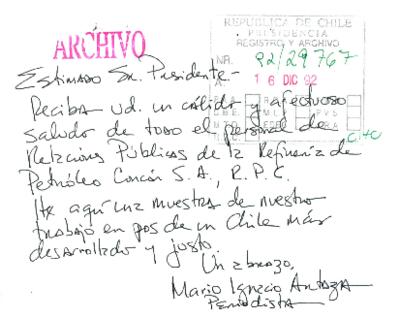 ARCHIVO
REPUBLICA DE CHILE
PRESIDENCIA
REGISTRO Y ARCHIVO
NR. 92/29767
A: 16 DIC 92
Estimado Sr. Presidente.-
Reciba ud. un cálido y afectuoso
saludo de todo el personal de
Relaciones Públicas de la Refinería de
Petróleo Concón S.A., R.P.C.
He aquí una muestra de nuestro
trabajo en pos de un Chile más
desarrollado y justo.
Un abrazo,
Mario Ignacio
Periodista